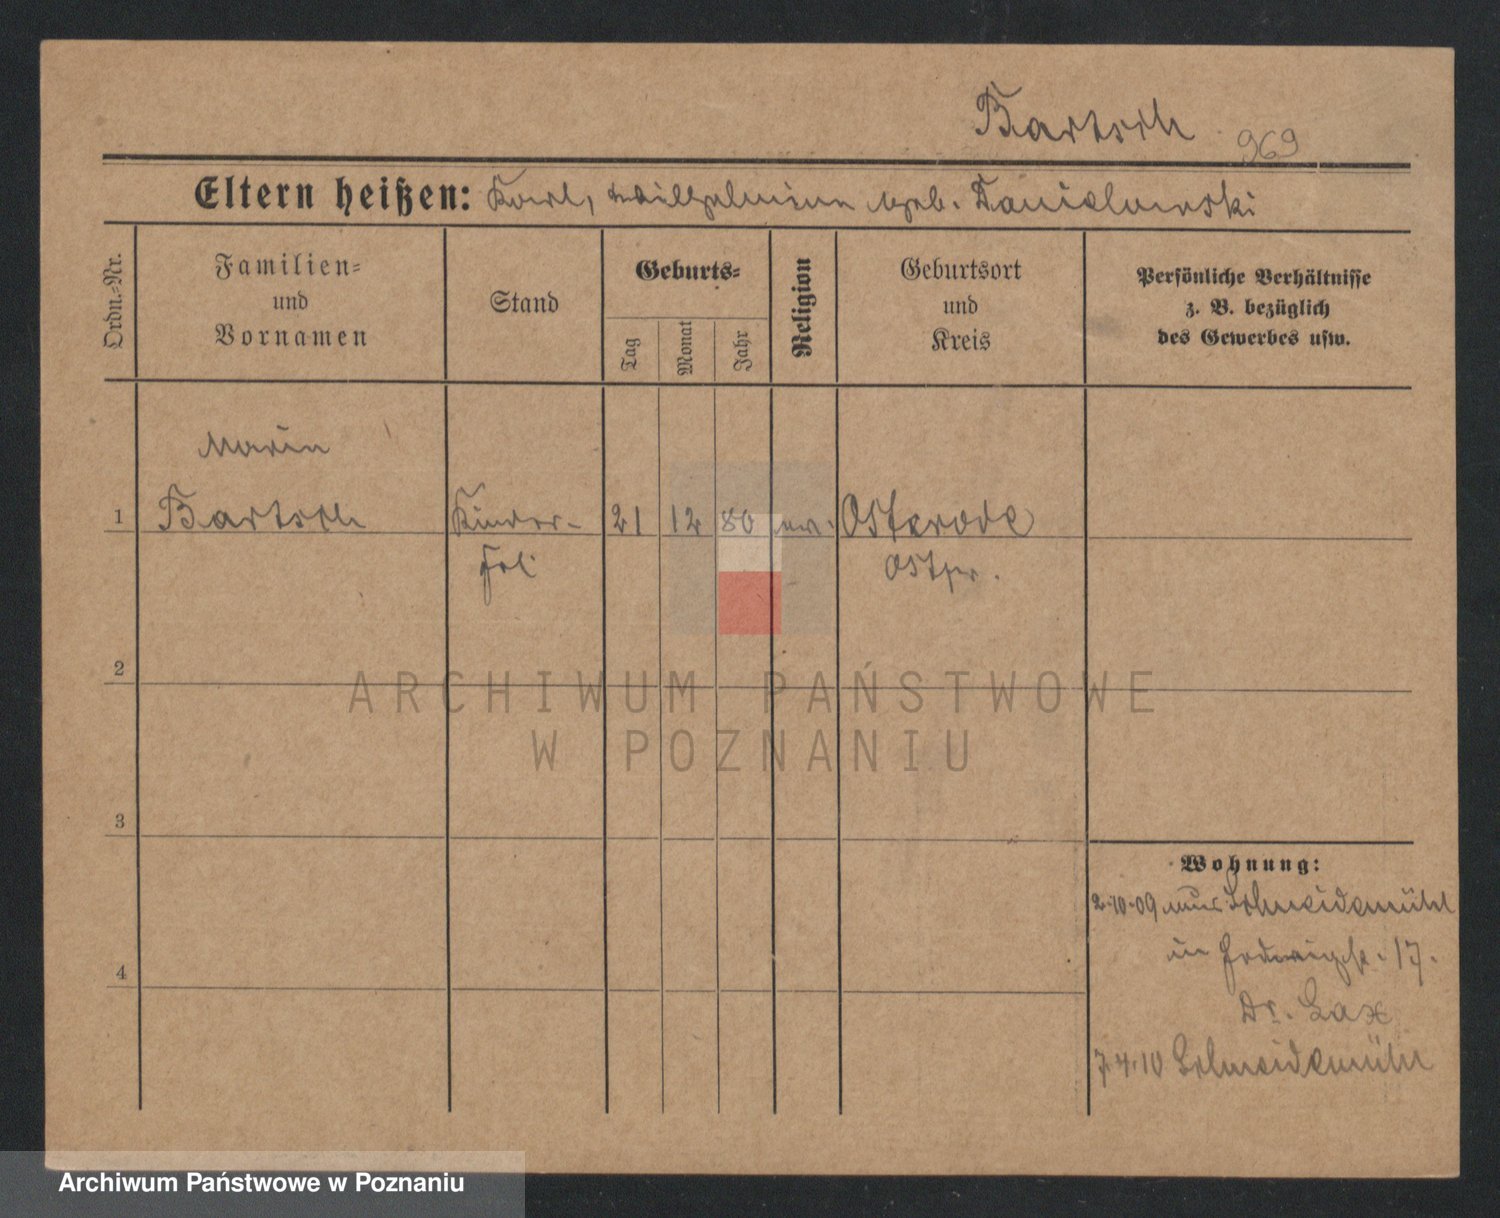 Bartsch
969
Eltern heißen: Karl, Wilhelmine geb. Danielowski
Ordn.-Nr.
Familien-
und
Vornamen
Stand
Geburts-
Tag
Monat
Jahr
Religion
Geburtsort
und
Kreis
Persönliche Verhältnisse
z. B. bezüglich
des Gewerbes usw.
Marie
1 Bartsch Kinder- 21 12 80 ev. Osterode
Frl. Ostpr.
2
3
4
Wohnung:
2.10.09 aus Schneidemühl
in Hedwigstr. 17.
Dr. Lax
7.4.10 Schneidemühl
ARCHIWUM PAŃSTWOWE
W POZNANIU
Archiwum Państwowe w Poznaniu